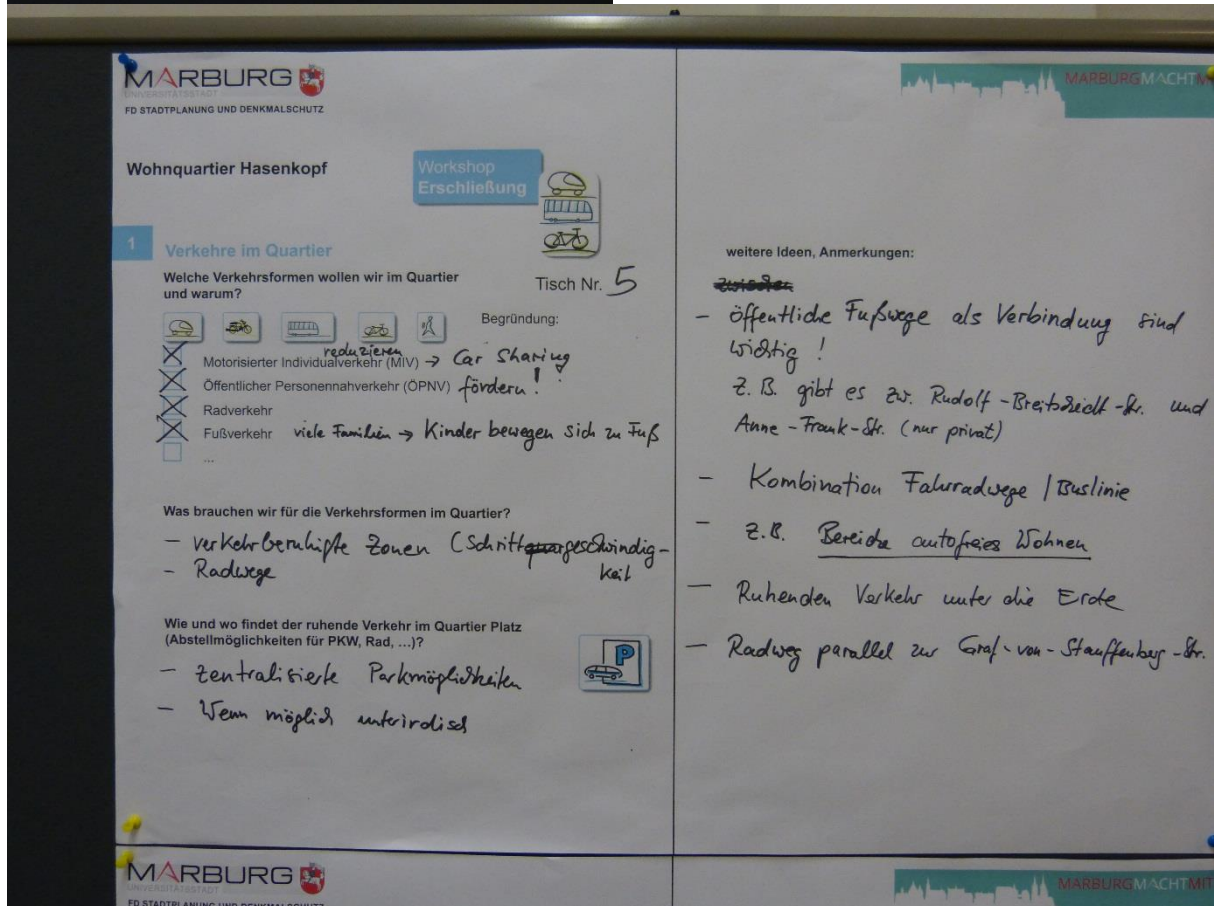 MARBURG
UNIVERSITÄTSSTADT
FD STADTPLANUNG UND DENKMALSCHUTZ
MARBURGMACHTM
Wohnquartier Hasenkopf
Workshop
Erschließung
1 Verkehre im Quartier
Welche Verkehrsformen wollen wir im Quartier
und warum?
Tisch Nr. 5
Begründung:
reduzieren
Motorisierter Individualverkehr (MIV) → Car Sharing
Öffentlicher Personennahverkehr (ÖPNV) fördern!
Radverkehr
Fußverkehr viele Familien → Kinder bewegen sich zu Fuß
...
Was brauchen wir für die Verkehrsformen im Quartier?
– verkehrberuhigte Zonen (Schrittgeschwindig-
keit
– Radwege
Wie und wo findet der ruhende Verkehr im Quartier Platz
(Abstellmöglichkeiten für PKW, Rad, ...)?
P
– zentralisierte Parkmöglichkeiten
– Wenn möglich unterirdisch
weitere Ideen, Anmerkungen:
zwischen
– öffentliche Fußwege als Verbindung sind
wichtig!
z.B. gibt es zw. Rudolf-Breitscheidt-Str. und
Anne-Frank-Str. (nur privat)
– Kombination Fahrradwege / Buslinie
– z.B. Bereiche autofreies Wohnen
– Ruhenden Verkehr unter die Erde
– Radweg parallel zur Graf-von-Stauffenberg-Str.
MARBURG
UNIVERSITÄTSSTADT
FD STADTPLANUNG UND DENKMALSCHUTZ
MARBURGMACHTMIT